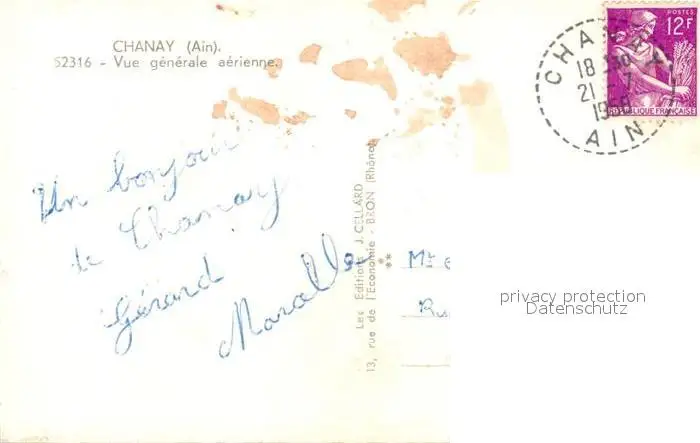 CHANAY (Ain).
52316 - Vue générale aérienne.
Un bonjour
de Chanay
Gérard
Les Editions J. CELLARD
13, rue de l'Economie - BRON (Rhône)
POSTES
12F
REPUBLIQUE FRANÇAISE
CHANAY
18 H30
21 - 7
AIN
Mr
privacy protection
Datenschutz